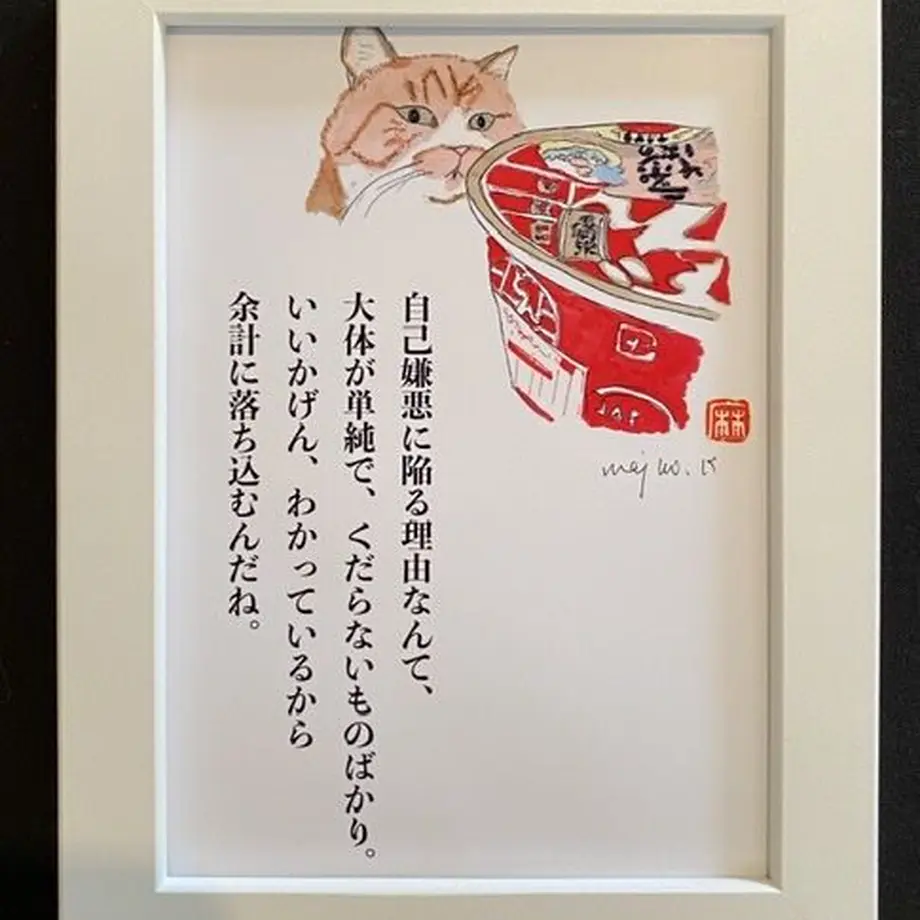 自己嫌悪に陥る理由なんて、
大体が単純で、くだらないものばかり。
いいかげん、わかっているから
余計に落ち込むんだね。
麻